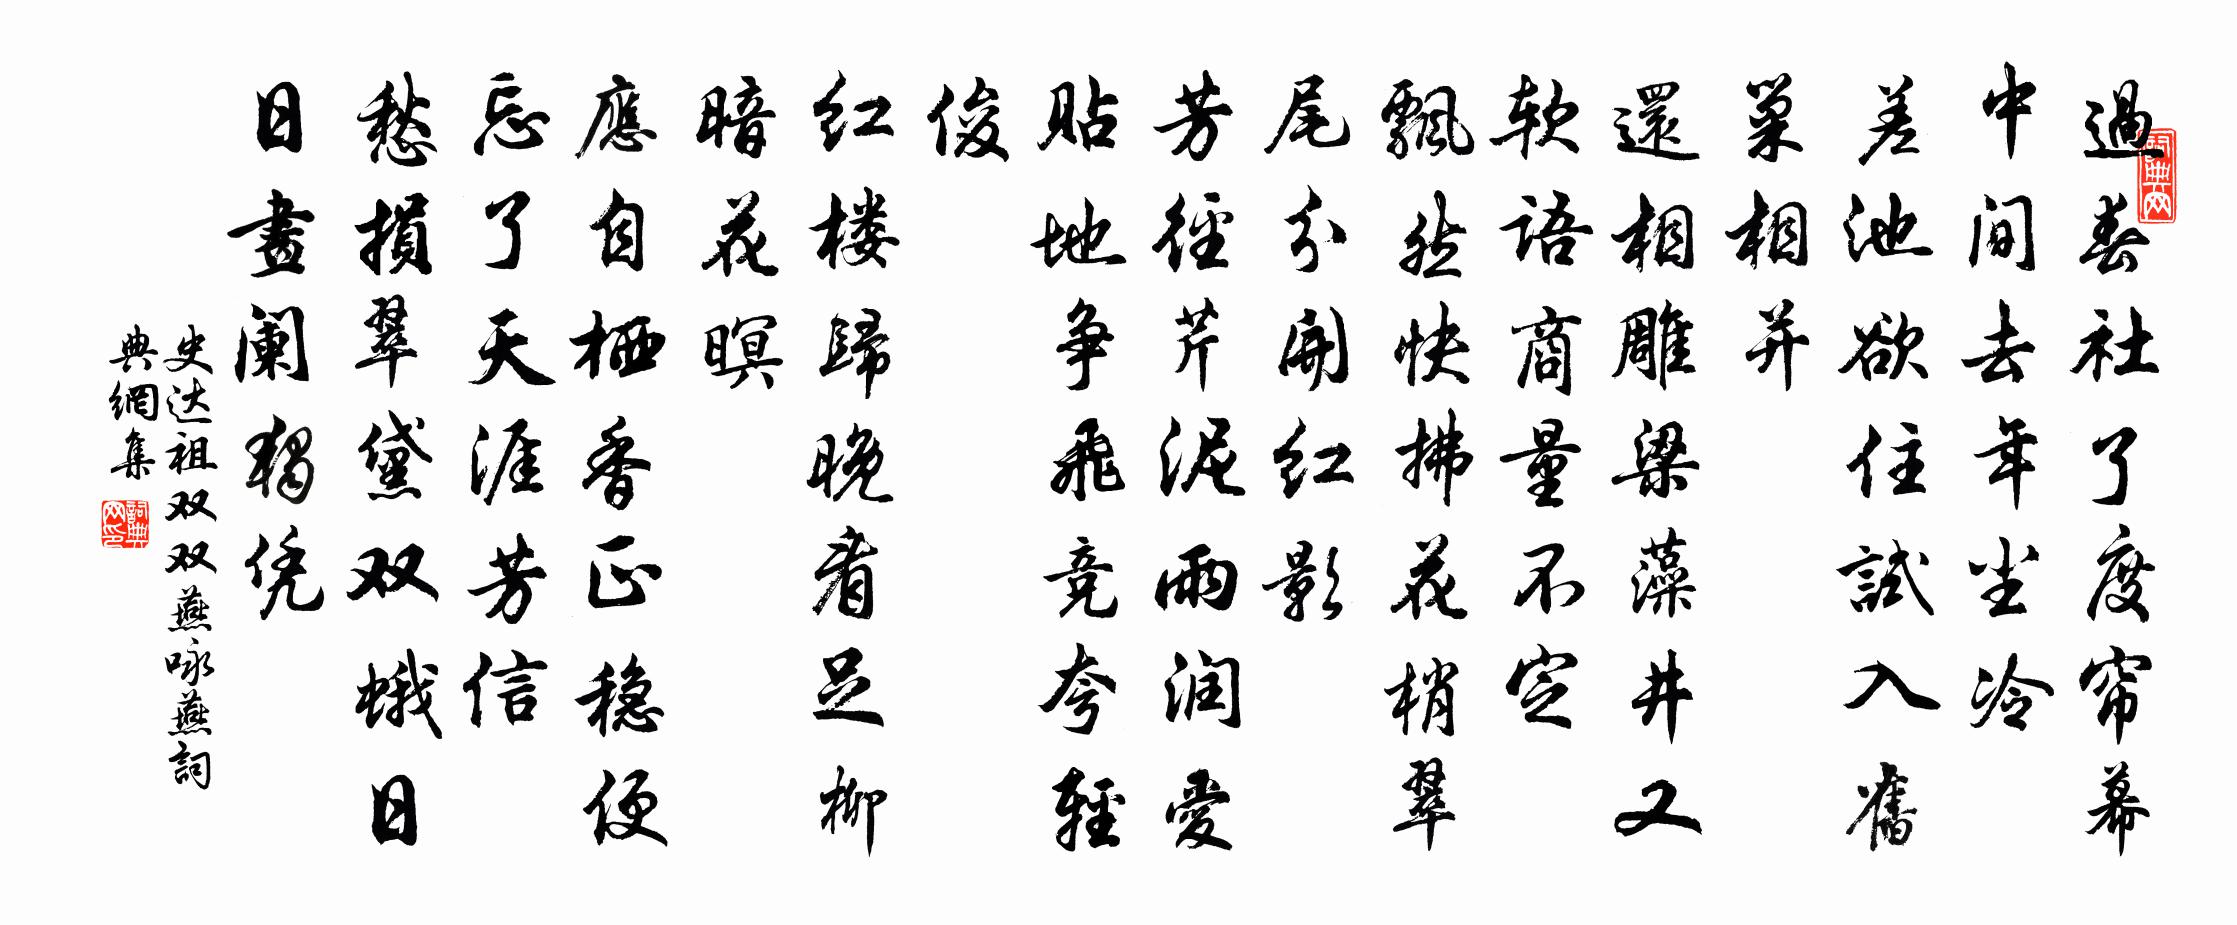 過春社了度帘幕
中间去年尘冷
差池欲住試入舊
巢相并
還相雕梁藻井又
软語商量不定
飄然快拂花梢翠
尾分開红影
芳徑芹泥雨润愛
貼地争飛竞夸輕
俊
红楼歸晚看足柳
暗花暝
應自栖香正稳便
忘了天涯芳信
愁損翠黛双蛾日
日畫阑獨凭
史达祖双双燕咏燕詞
典網集